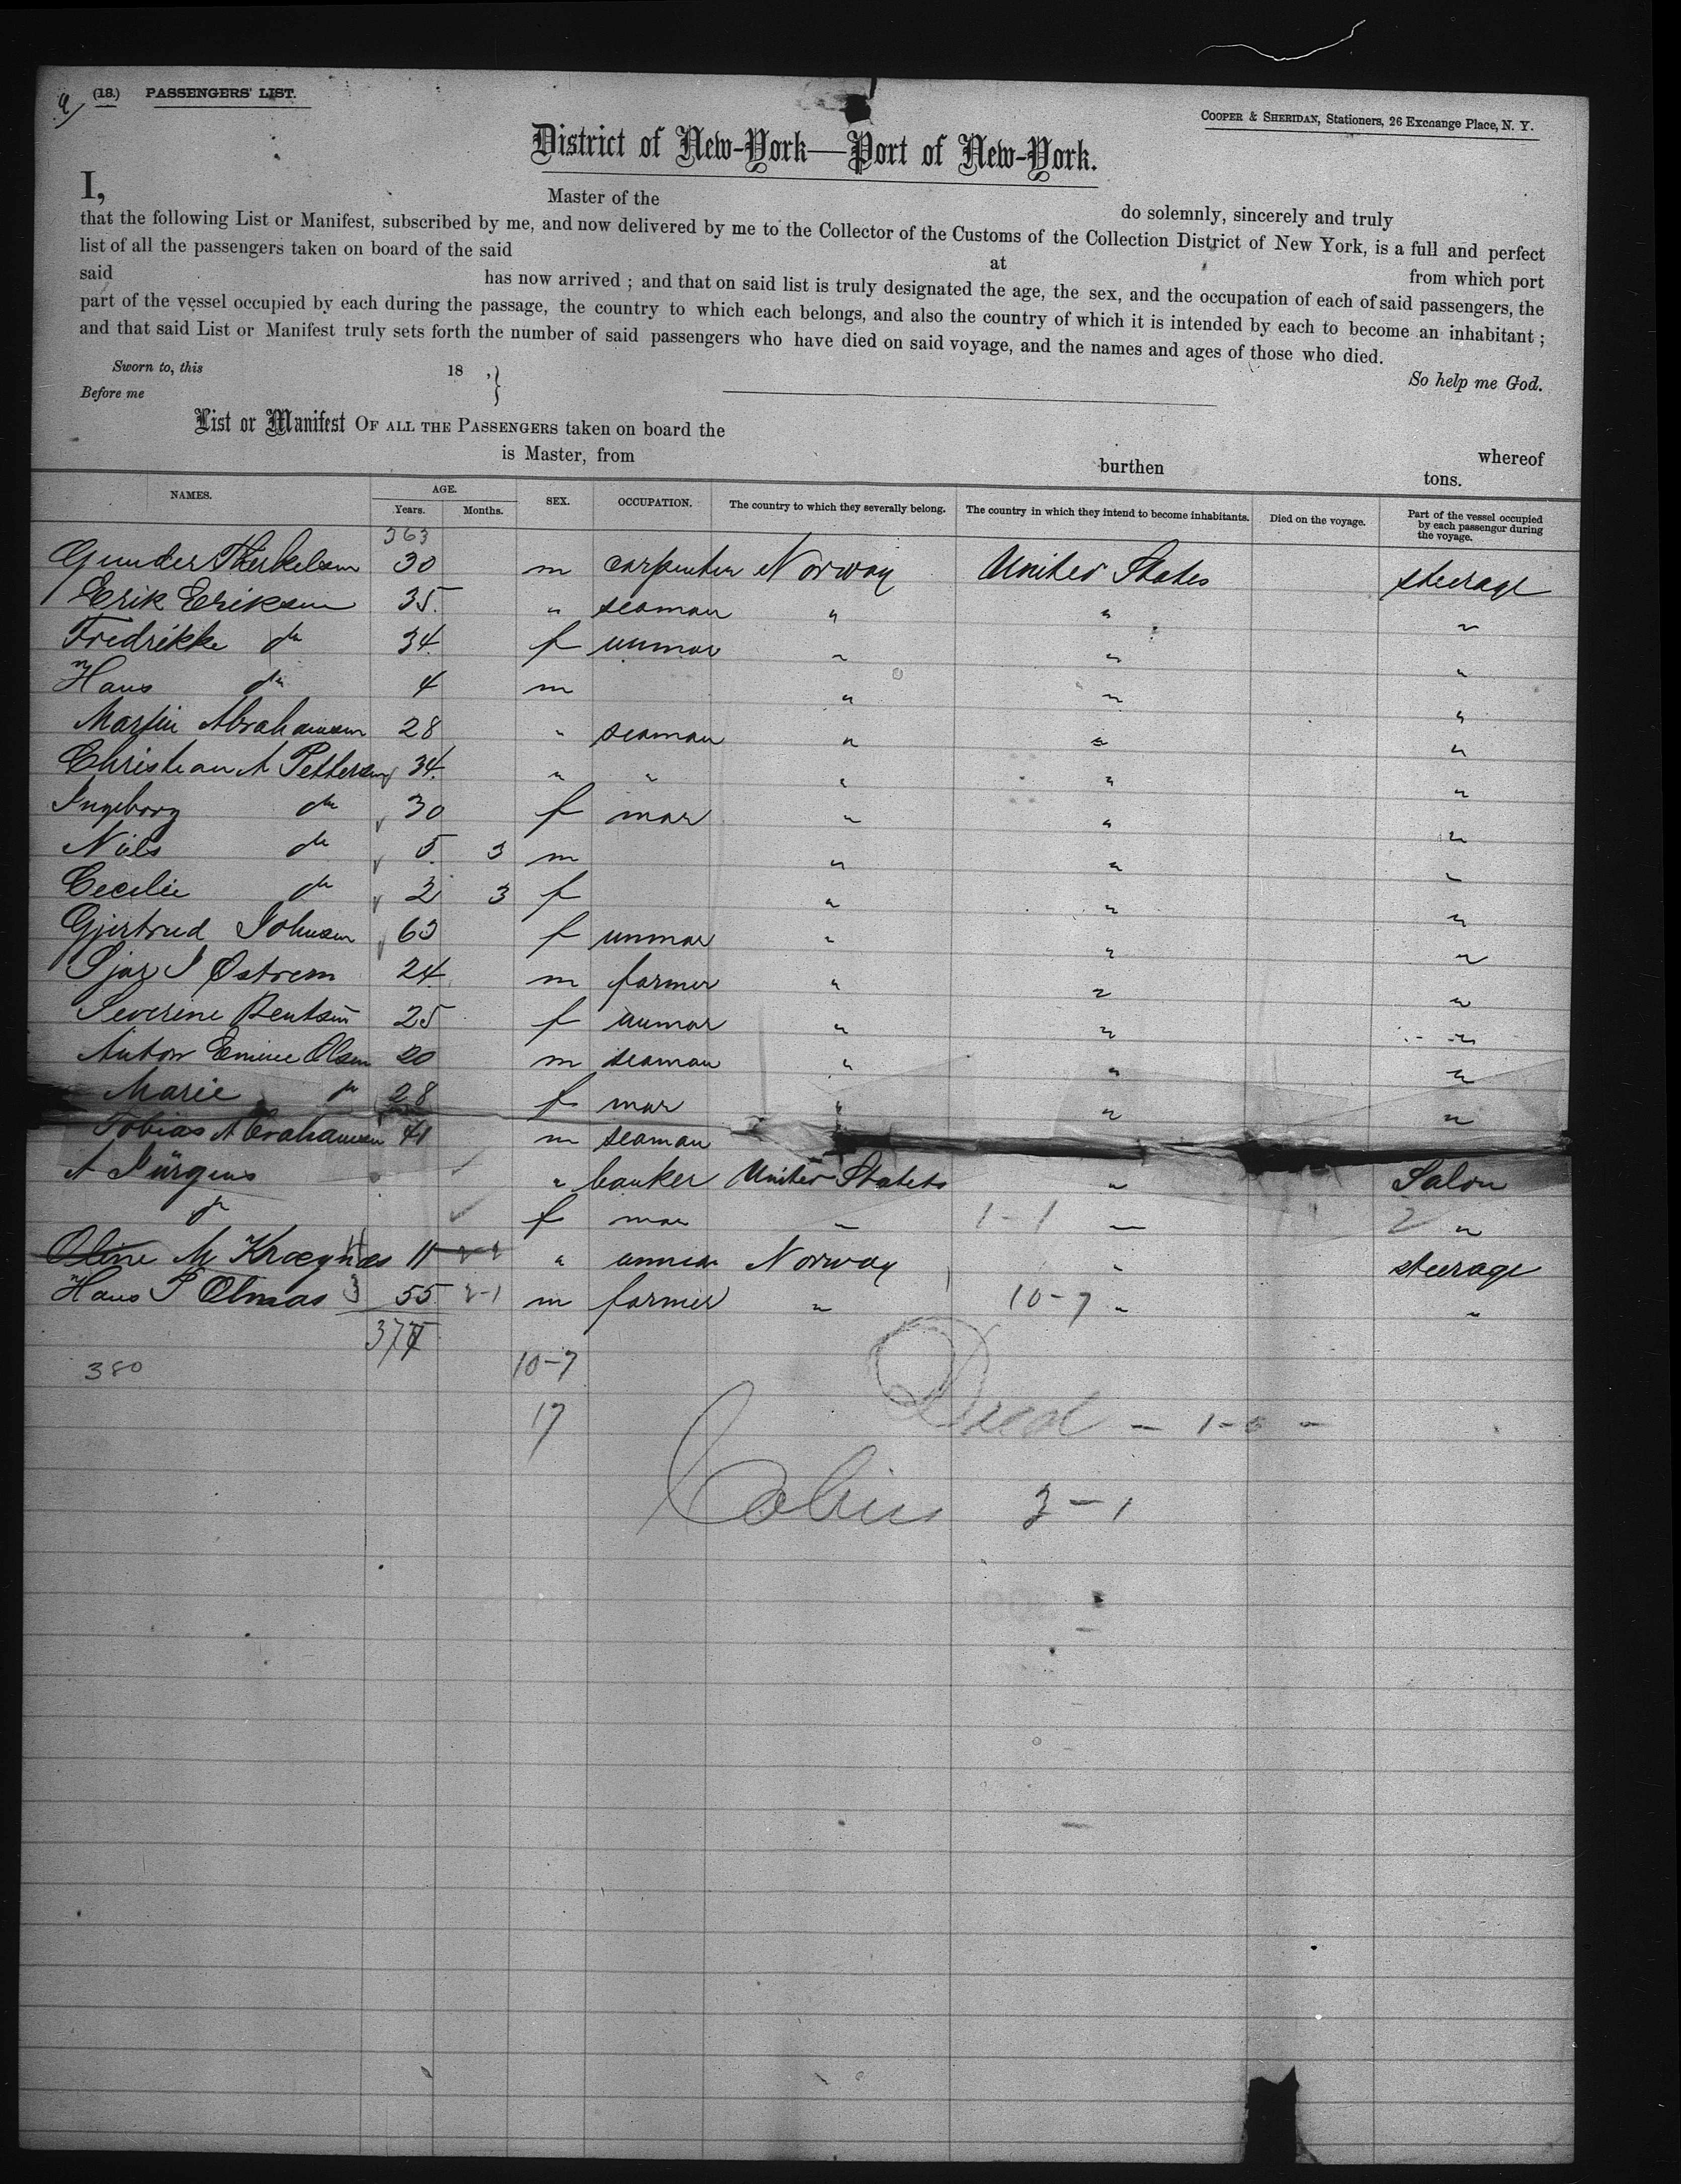 9/ (18.) PASSENGERS' LIST.
COOPER & SHERIDAN, Stationers, 26 Exchange Place, N. Y.
District of New-York—Port of New-York.
I, Master of the do solemnly, sincerely and truly
that the following List or Manifest, subscribed by me, and now delivered by me to the Collector of the Customs of the Collection District of New York, is a full and perfect
list of all the passengers taken on board of the said at from which port
said has now arrived ; and that on said list is truly designated the age, the sex, and the occupation of each of said passengers, the
part of the vessel occupied by each during the passage, the country to which each belongs, and also the country of which it is intended by each to become an inhabitant ;
and that said List or Manifest truly sets forth the number of said passengers who have died on said voyage, and the names and ages of those who died.
Sworn to, this 18 , } So help me God.
Before me
List or Manifest OF ALL THE PASSENGERS taken on board the whereof
is Master, from burthen tons.
NAMES. AGE. Years. Months. SEX. OCCUPATION. The country to which they severally belong. The country in which they intend to become inhabitants. Died on the voyage. Part of the vessel occupied by each passenger during the voyage.
363
Gunder Therkelsen 30 m carpenter Norway United States steerage
Erik Eriksen 35 " seaman " " "
Fredrikke do 34 f unmar " " "
Hans do 4 m " " "
Martin Abrahamsen 28 " seaman " " "
Christian A Pettersen 34 " " " " "
Ingeborg do 30 f mar " " "
Niels do 5 3 m " " "
Cecilie do 2 3 f " " "
Gjertrud Johnsen 63 f unmar " " "
J Østrem 24 m farmer " " "
Severine Bentsen 25 f unmar " " "
Anton Emine Olsen 20 m seaman " " "
Marie do 28 f mar " " "
Tobias Abrahamsen 41 m seaman
A Jürgens " banker United States " Salon
do f mar " 1-1 " 2 "
Oline M 11 " unmar Norway " steerage
Hans P Olmas 3 55 2-1 m farmer " 10-7 " "
377
380 10-7
17
Died - 1-0 -
Cabin 3-1